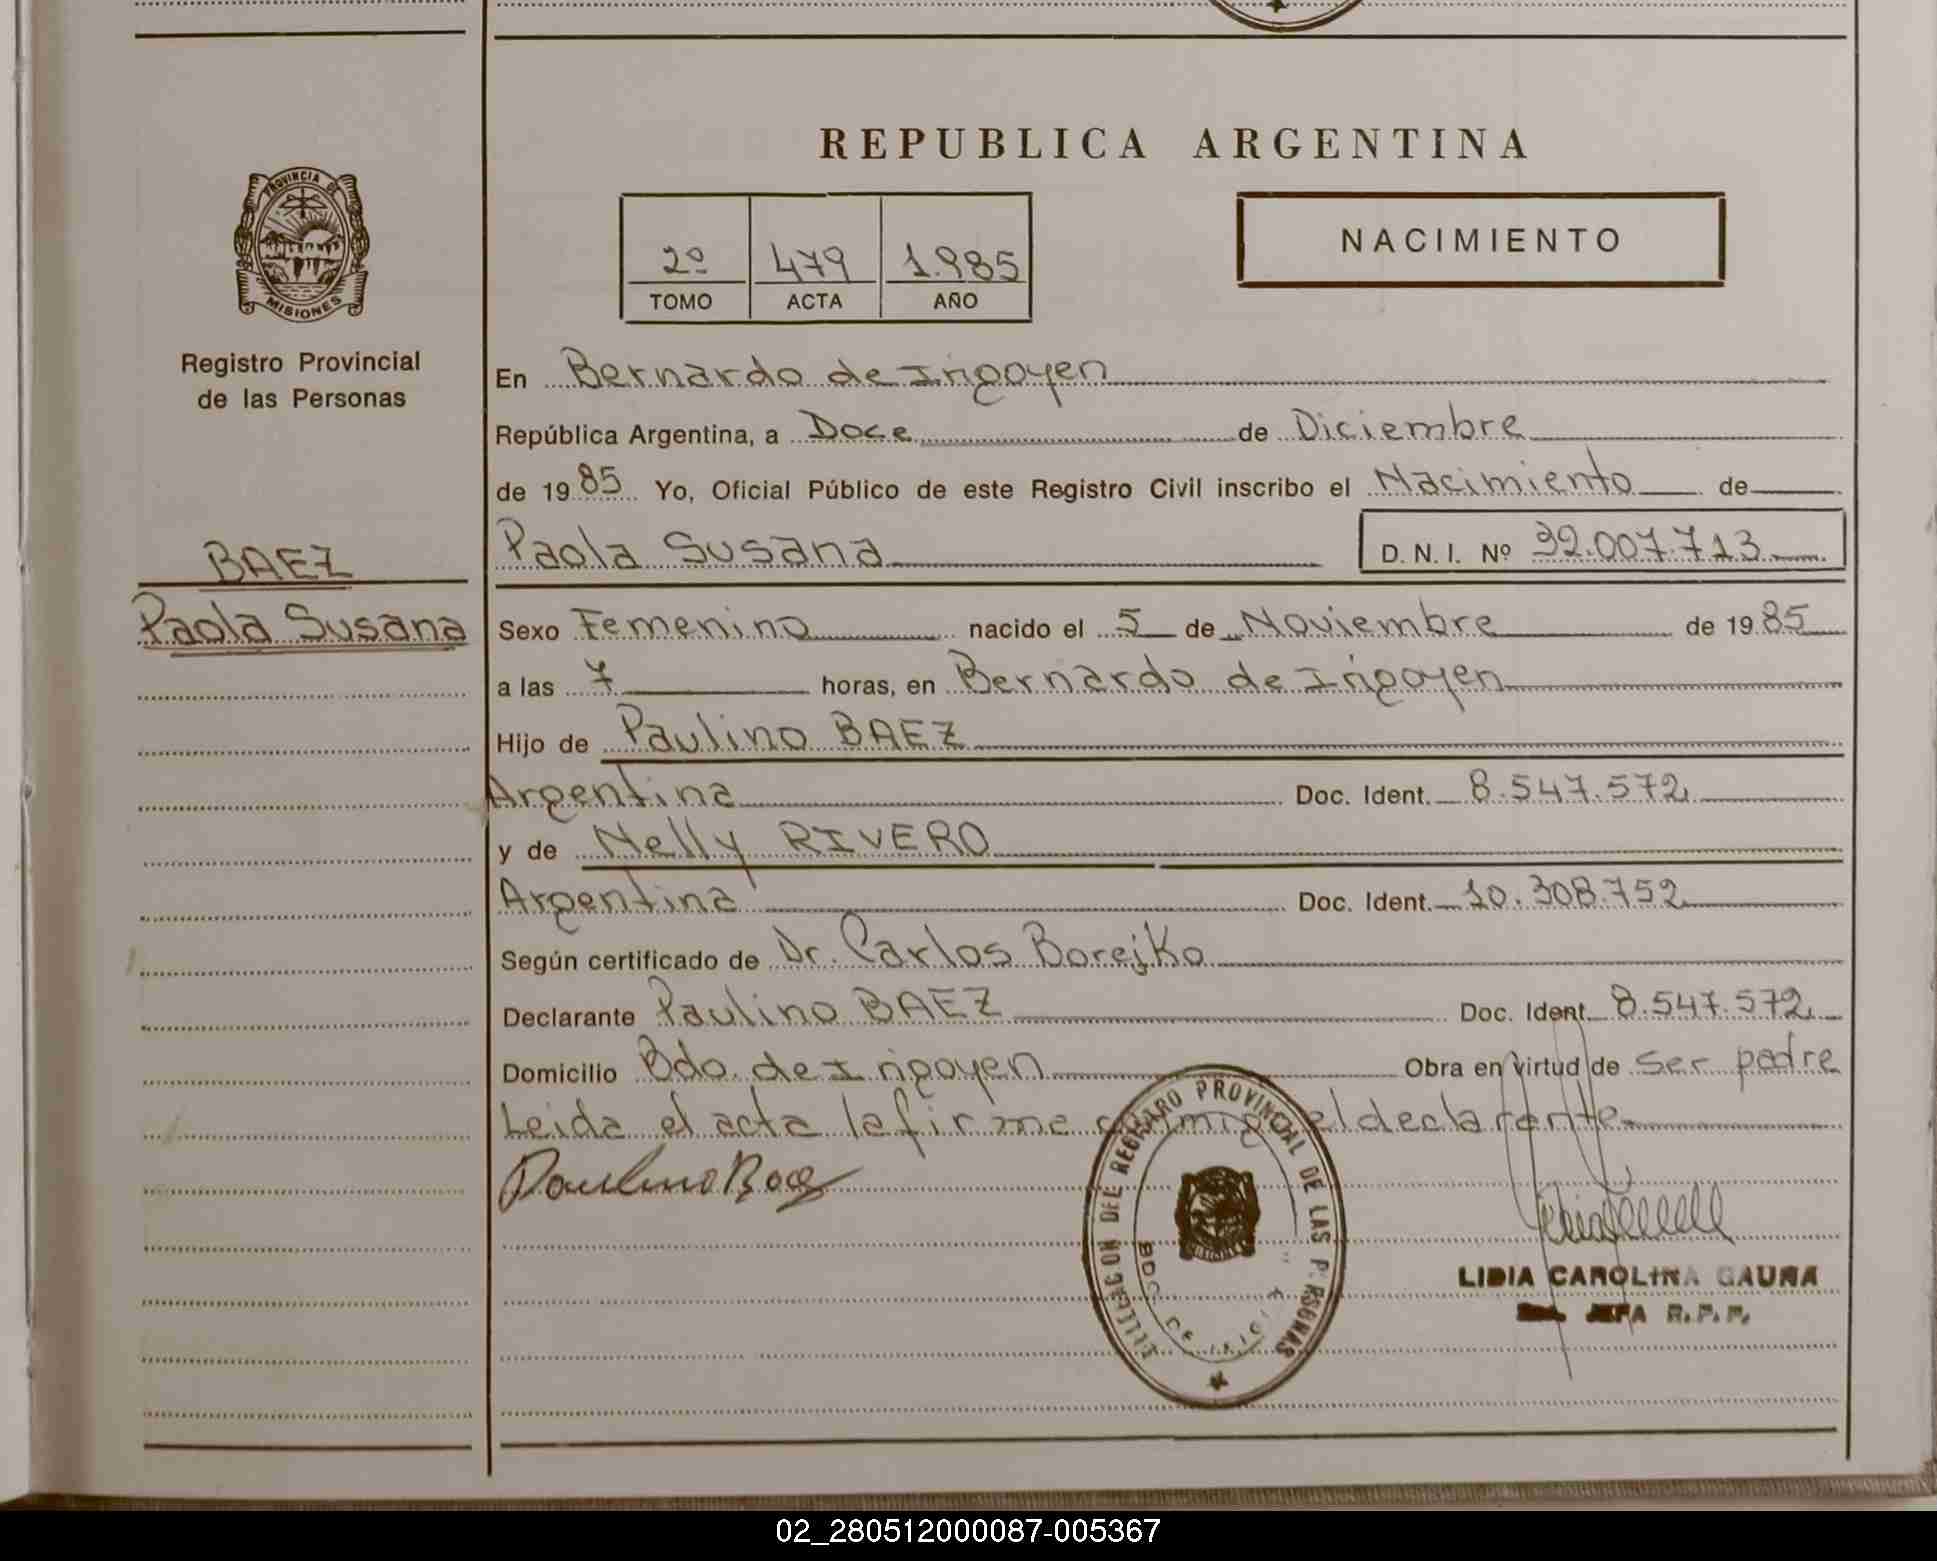 REPUBLICA ARGENTINA
PROVINCIA DE
MISIONES
Registro Provincial
de las Personas
2º 479 1.985
TOMO ACTA AÑO
NACIMIENTO
En Bernardo de Irigoyen
República Argentina, a Doce de Diciembre
de 1985 Yo, Oficial Público de este Registro Civil inscribo el Nacimiento de
Paola Susana D. N. I. Nº 32.007.713
BAEZ
Paola Susana
Sexo Femenino nacido el 5 de Noviembre de 1985
a las 7 horas, en Bernardo de Irigoyen
Hijo de Paulino BAEZ
Argentina Doc. Ident. 8.547.572
y de Nelly RIVERO
Argentina Doc. Ident. 10.308.752
Según certificado de Dr. Carlos Borejko
Declarante Paulino BAEZ Doc. Ident. 8.547.572
Domicilio Bdo. de Irigoyen Obra en virtud de ser padre
Leida el acta la firma conmigo el declarante
Paulino Baez
DELEGACION DEL REGISTRO PROVINCIAL DE LAS PERSONAS
BDO. DE IRIGOYEN
LIDIA CAROLINA GAUNA
JEFA R.P.P.
02_280512000087-005367